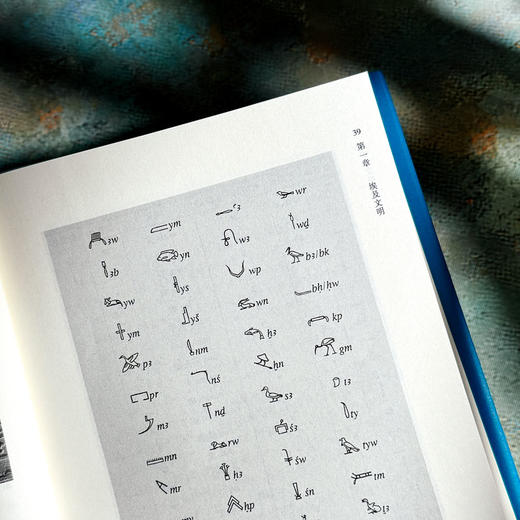 39
第一章
埃及文明
3w ym ꜥ3 wr
3b yn w3 wḏ
yw ys wp b3/bk
ym yš wn bḥ/ḥw
p3 nm ḫ3 kp
pr nś ẖn gm
m3 nḏ s3 t3
mn rw ś3 ty
mr ḥ3 św tyw
ḥp śn tm
ṯ3